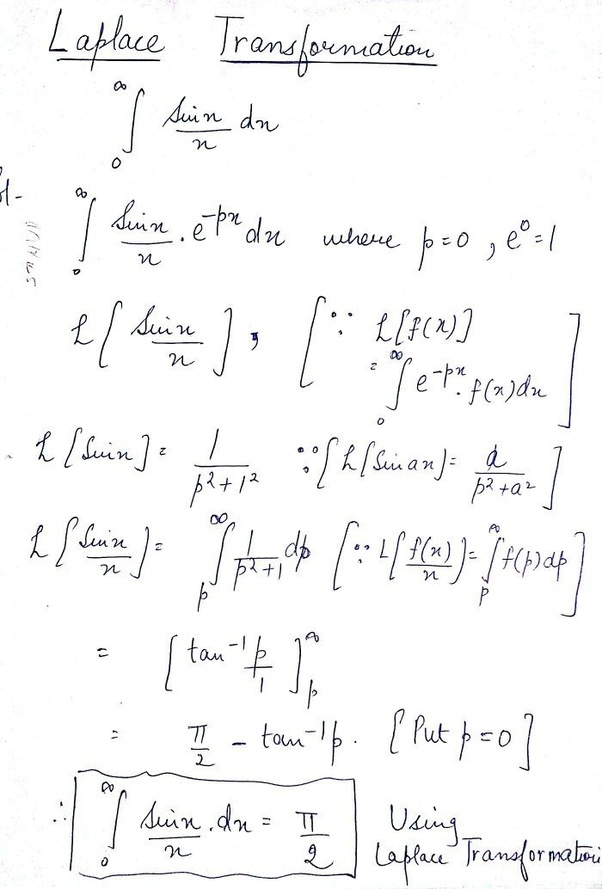 Laplace Transformation
∫₀^∞ sinx/x dx
∫₀^∞ sinx/x . e^-px dx where p=0, e⁰=1
L[sinx/x], [∵ L[f(x)] = ∫₀^∞ e^-px . f(x)dx]
L[sinx] = 1/(p²+1²) ∵[L[sinax] = a/(p²+a²)]
L[sinx/x] = ∫ₚ^∞ 1/(p²+1) dp [∵ L[f(x)/x] = ∫ₚ^∞ f(p)dp]
= [tan⁻¹ p/1]ₚ^∞
= π/2 - tan⁻¹p. [Put p=0]
∴ ∫₀^∞ sinx/x . dx = π/2 Using
Laplace Transformation